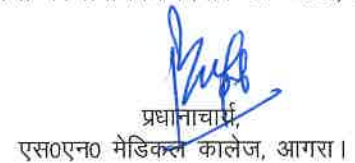 प्रधानाचार्य,
एस०एन० मेडिकल कालेज, आगरा।